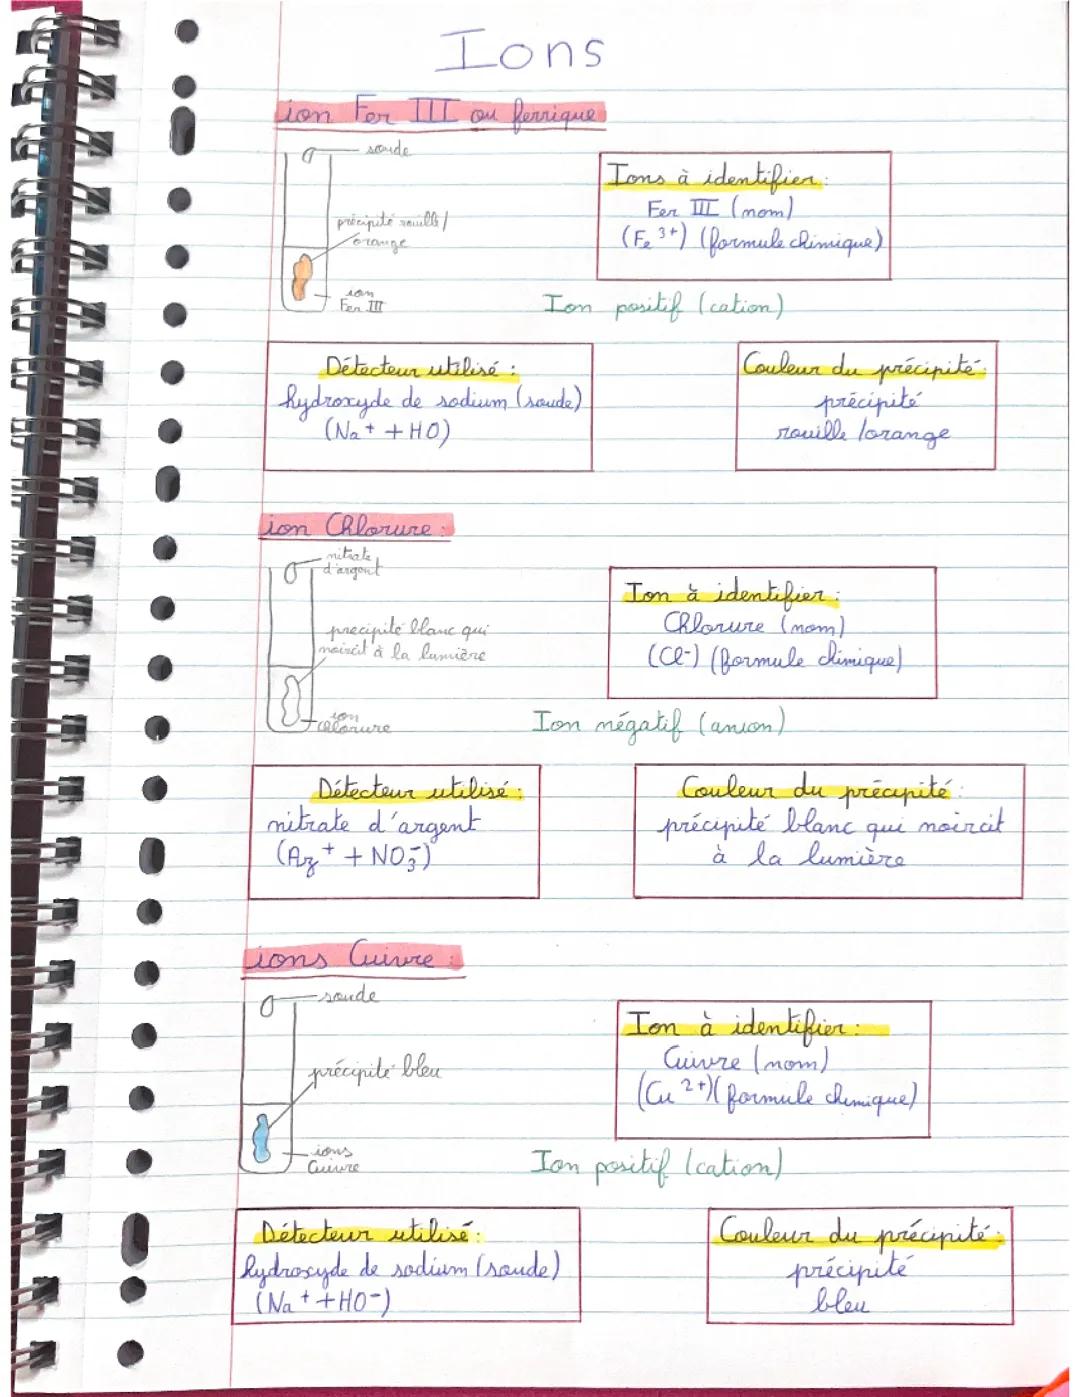 Ions
ion Fer III ou ferrique
soude
précipité rouille/
orange
ion
Fer III
Ions à identifier :
Fer III (nom)
(Fe 3+) (formule chimique)
Ion positif (cation)
Détecteur utilisé :
hydroxyde de sodium (soude)
(Na+ + HO)
Couleur du précipité :
précipité
rouille /orange
ion Chlorure :
nitrate
d'argent
precipité blanc qui
noircit à la lumière
ion
chlorure
Ion à identifier :
Chlorure (nom)
(Cl-) (formule chimique)
Ion négatif (anion)
Détecteur utilisé :
nitrate d'argent
(Ag+ + NO3-)
Couleur du précipité :
précipité blanc qui noircit
à la lumière
ions Cuivre :
soude
précipité bleu
ions
Cuivre
Ion à identifier :
Cuivre (nom)
(Cu 2+)(formule chimique)
Ion positif (cation)
Détecteur utilisé :
hydroxyde de sodium (soude)
(Na+ + HO-)
Couleur du précipité :
précipité
bleu